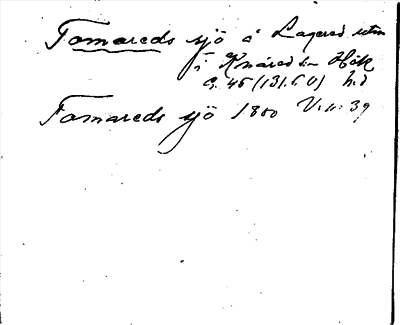 Tomareds sjö å Lagered utm
i Knäred sn Hök
G. 45 (131.60) h.d
Tomareds sjö 1800 V.11:39